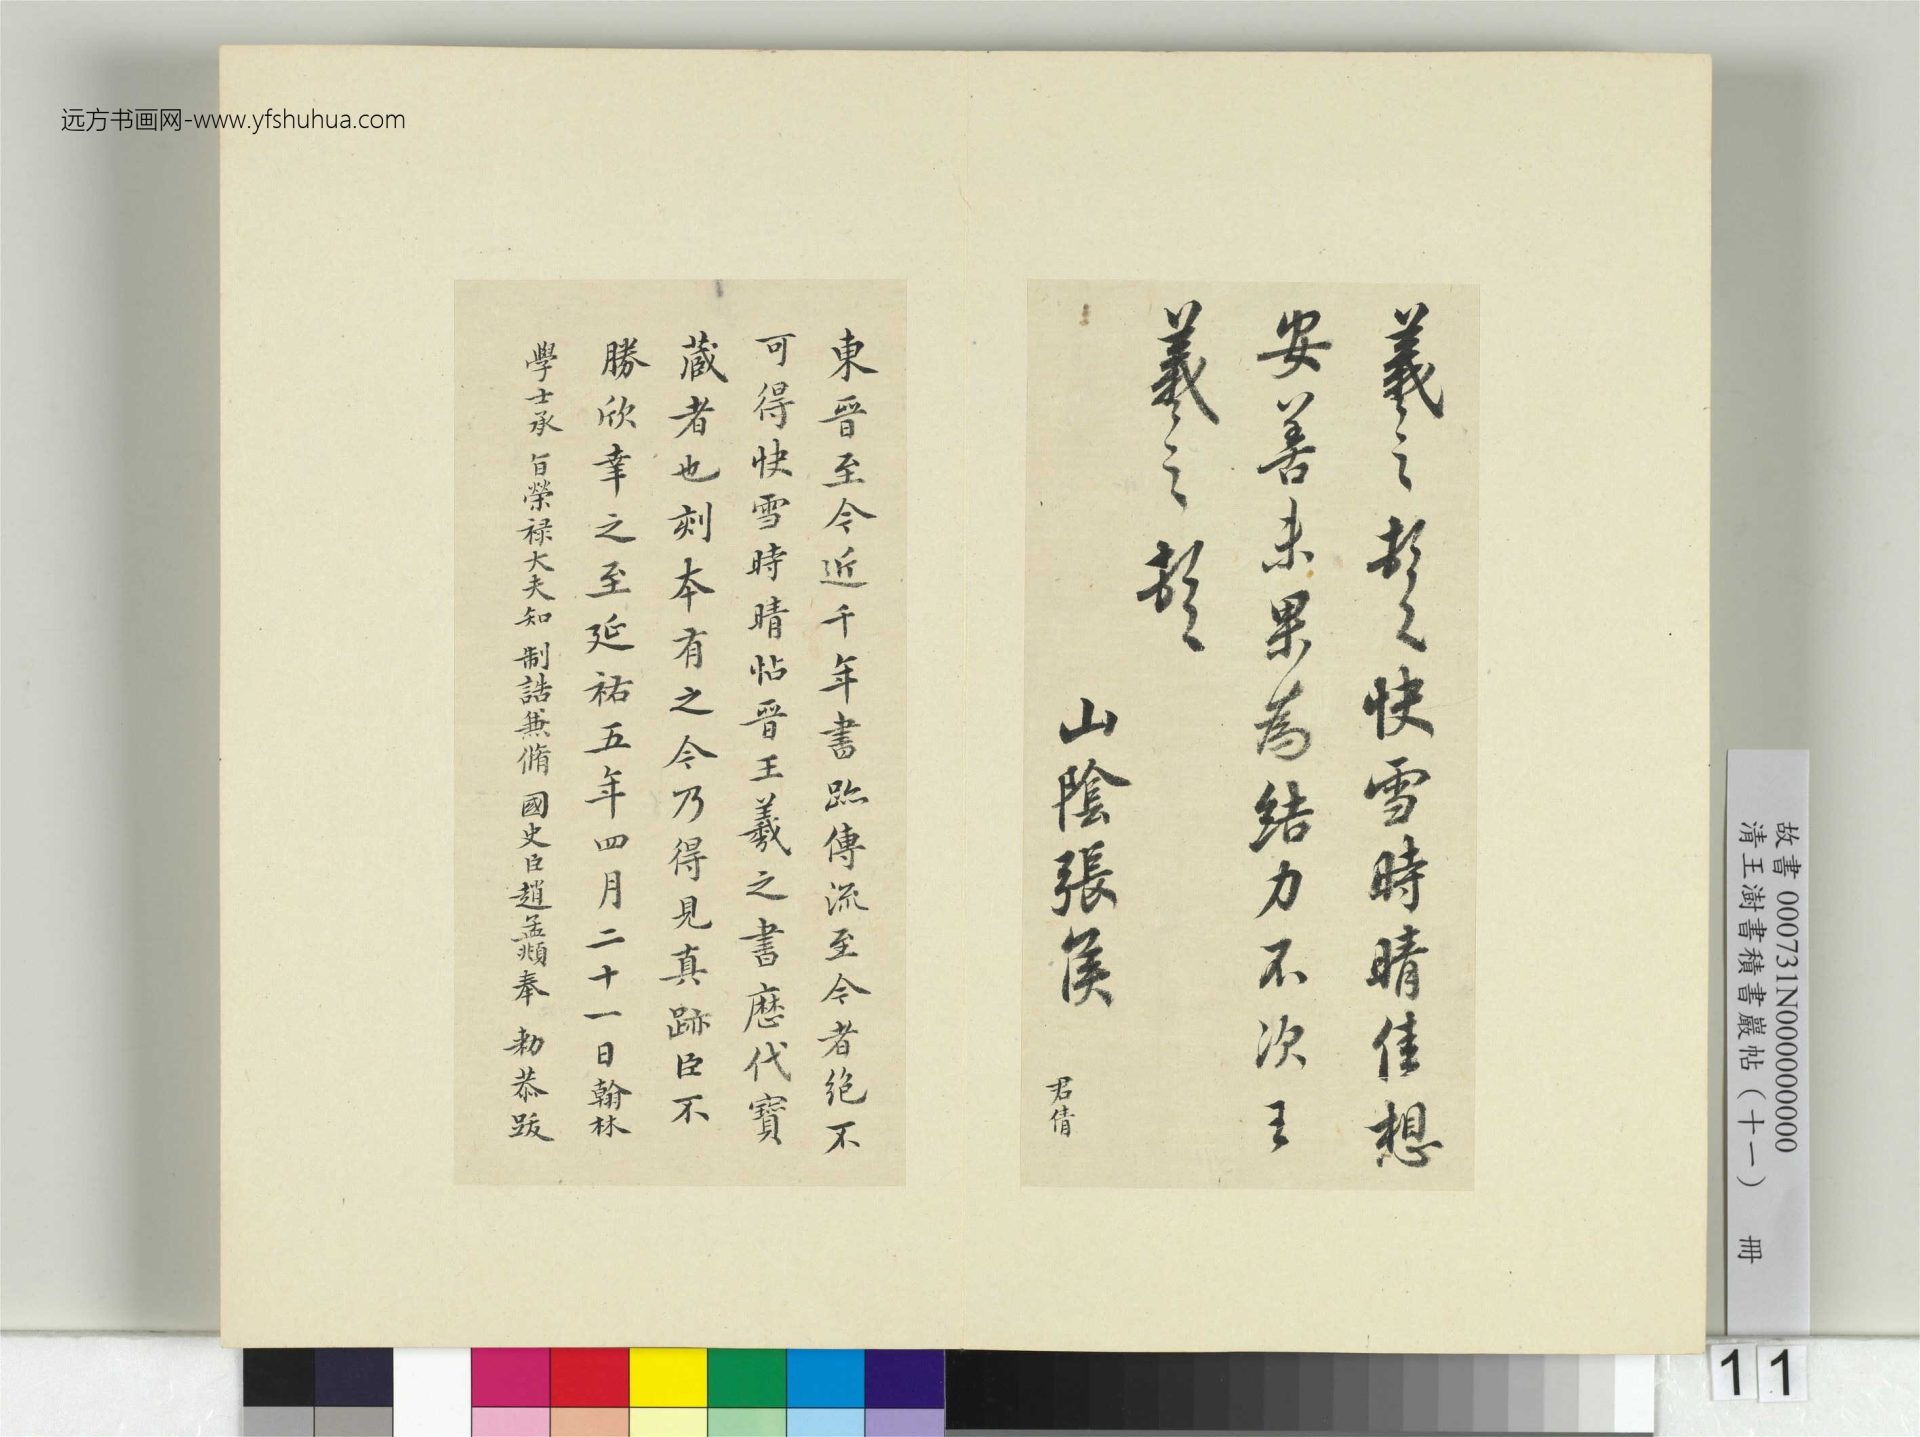 远方书画网-www.yfshuhua.com
羲之頓首快雪時晴佳想
安善未果為結力不次王
羲之頓首
山陰張侯
君倩
東晉至今近千年書跡傳流至今者絶不
可得快雪時晴帖晉王羲之書歷代寶
藏者也刻本有之今乃得見真跡臣不
勝欣幸之至延祐五年四月二十一日翰林
學士承旨榮禄大夫知制誥兼脩國史臣趙孟頫奉勑恭跋
故書 000731N000000000
清王澍書積書巖帖（十一） 冊
11